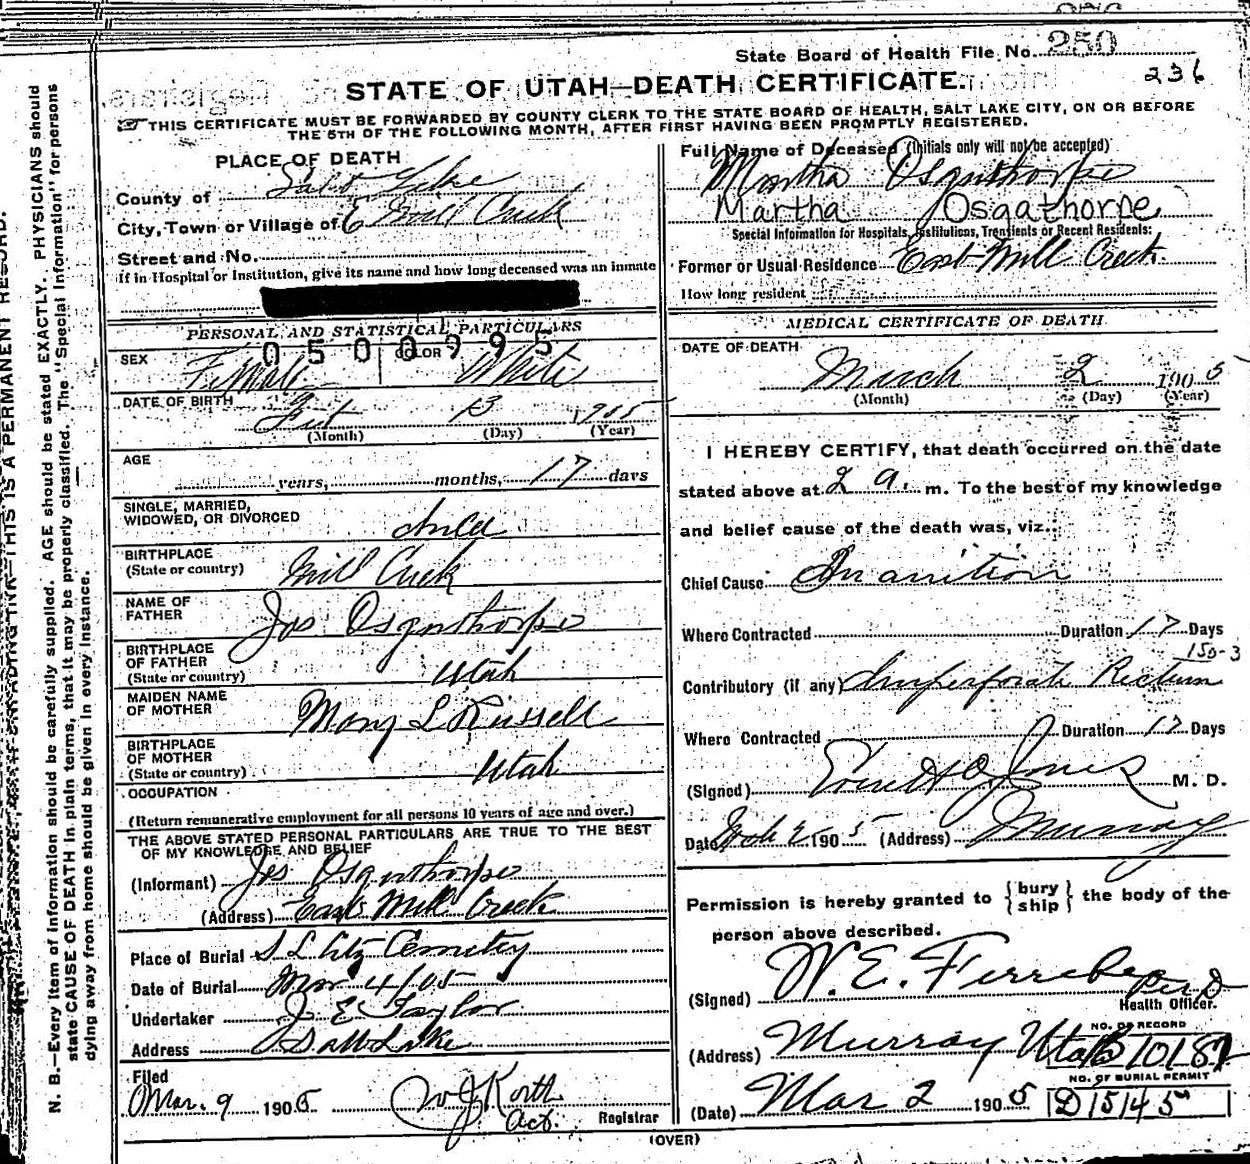 State Board of Health File No. 250
236
STATE OF UTAH—DEATH CERTIFICATE.
THIS CERTIFICATE MUST BE FORWARDED BY COUNTY CLERK TO THE STATE BOARD OF HEALTH, SALT LAKE CITY, ON OR BEFORE
THE 5TH OF THE FOLLOWING MONTH, AFTER FIRST HAVING BEEN PROMPTLY REGISTERED.
PLACE OF DEATH
County of Salt Lake
City, Town or Village of E Mill Creek
Street and No.
If in Hospital or Institution, give its name and how long deceased was an inmate
PERSONAL AND STATISTICAL PARTICULARS
0500995
SEX Female COLOR White
DATE OF BIRTH Feb 13 1905
(Month) (Day) (Year)
AGE
years, months, 17 days
SINGLE, MARRIED,
WIDOWED, OR DIVORCED
BIRTHPLACE
(State or country) Mill Creek
NAME OF
FATHER Jos Osguthorpe
BIRTHPLACE
OF FATHER
(State or country) Utah
MAIDEN NAME
OF MOTHER Mary L Russell
BIRTHPLACE
OF MOTHER
(State or country) Utah
OCCUPATION
(Return remunerative employment for all persons 10 years of age and over.)
THE ABOVE STATED PERSONAL PARTICULARS ARE TRUE TO THE BEST
OF MY KNOWLEDGE AND BELIEF
(Informant) Jos Osguthorpe
(Address) East Mill Creek
Place of Burial S L City Cemetery
Date of Burial Mar 4/05
Undertaker J E Taylor
Address Salt Lake
Filed
Mar. 9 1905 W J Korth
Act. Registrar
Full Name of Deceased (Initials only will not be accepted)
Martha Osguthorpe
Martha Osgathorpe
Special Information for Hospitals, Institutions, Transients or Recent Residents:
Former or Usual Residence East Mill Creek
How long resident
MEDICAL CERTIFICATE OF DEATH
DATE OF DEATH
March 2 1905
(Month) (Day) (Year)
I HEREBY CERTIFY, that death occurred on the date
stated above at 2 a. m. To the best of my knowledge
and belief cause of the death was, viz.:
Chief Cause Inanition
Where Contracted Duration 17 Days
150-3
Contributory (if any) Imperforate Rectum
Where Contracted Duration 17 Days
(Signed) Jones M. D.
Date 2 1905 (Address) Murray
Permission is hereby granted to {bury ship} the body of the
person above described.
(Signed) W. E. Ferrebee
Health Officer.
(Address) Murray Utah
NO. OF RECORD
B 10187
NO. OF BURIAL PERMIT
(Date) Mar 2 1905 D15145
(OVER)
N. B.—Every item of information should be carefully supplied. AGE should be stated EXACTLY. PHYSICIANS should
state CAUSE OF DEATH in plain terms, that it may be properly classified. The "Special Information" for persons
dying away from home should be given in every instance.
THIS IS A PERMANENT RECORD.